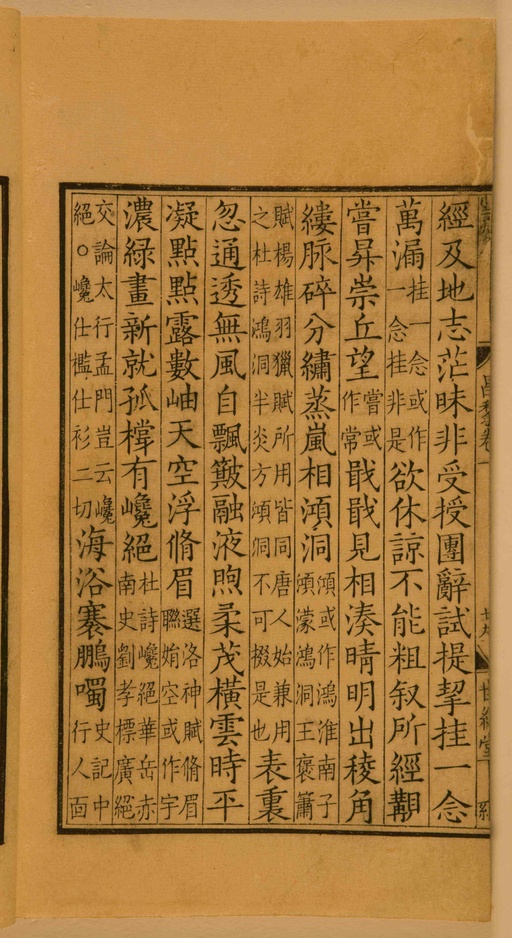 經及地志茫昧非受授團辭試提挈挂一念
萬漏挂一念或作一念挂非是欲休諒不能粗叙所經覯
嘗昇崇丘望嘗或作常戢戢見相湊晴明出稜角
縷脉碎分繡蒸嵐相澒洞澒或作鴻淮南子澒濛鴻洞王褒簫
賦楊雄羽獵賦所用皆同唐人始兼用之杜詩鴻洞半炎方澒洞不可掇是也表裏
忽通透無風自飄簸融液煦柔茂橫雲時平
凝點點露數岫天空浮脩眉選洛神賦脩眉聯娟空或作宇
濃綠畫新就孤橕有巉絕杜詩巉絕華岳赤南史劉孝標廣絕
交論太行孟門豈云巉絕○巉仕檻仕衫二切海浴褰鵬噣史記中行人面